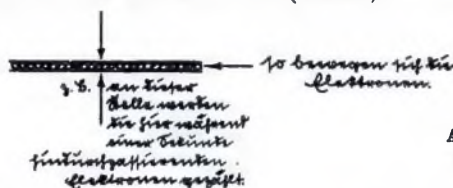 so bewegen sich die
Elektronen.
z.B. an dieser
Stelle werden
die hier während
einer Sekunde
hindurchpassierenden
Elektronen gezählt.
A